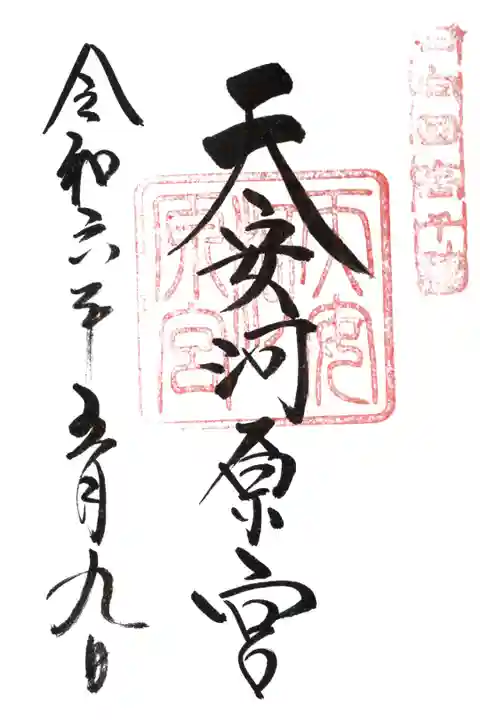 天安河原宮
令和六年五月九日
天安河原宮